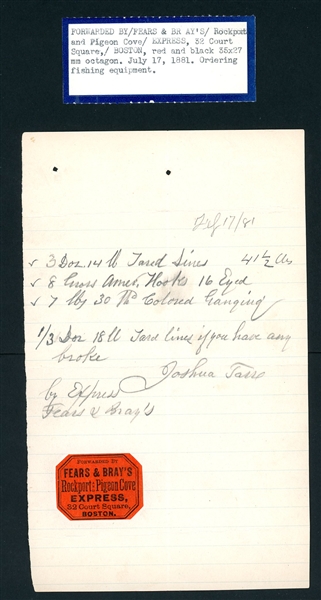 FORWARDED BY/FEARS & BR AY'S/ Rockport
and Pigeon Cove/ EXPRESS, 32 Court
Square,/ BOSTON, red and black 35x27
mm octagon. July 17, 1881. Ordering
fishing equipment.
17/81
✓ 3 Doz 14 ℔ Tared Lines 41½ Cts
✓ 8 Gross Amer. Hooks 16 Eyed
✓ 7 lbs 30 Thd Colored Ganging
1/3 Doz 18 ℔ Tard lines if you have any
broke
Joshua Tarr
by Express
Fears & Bray's
FORWARDED BY
FEARS & BRAY'S
Rockport and Pigeon Cove
EXPRESS,
32 Court Square,
BOSTON.